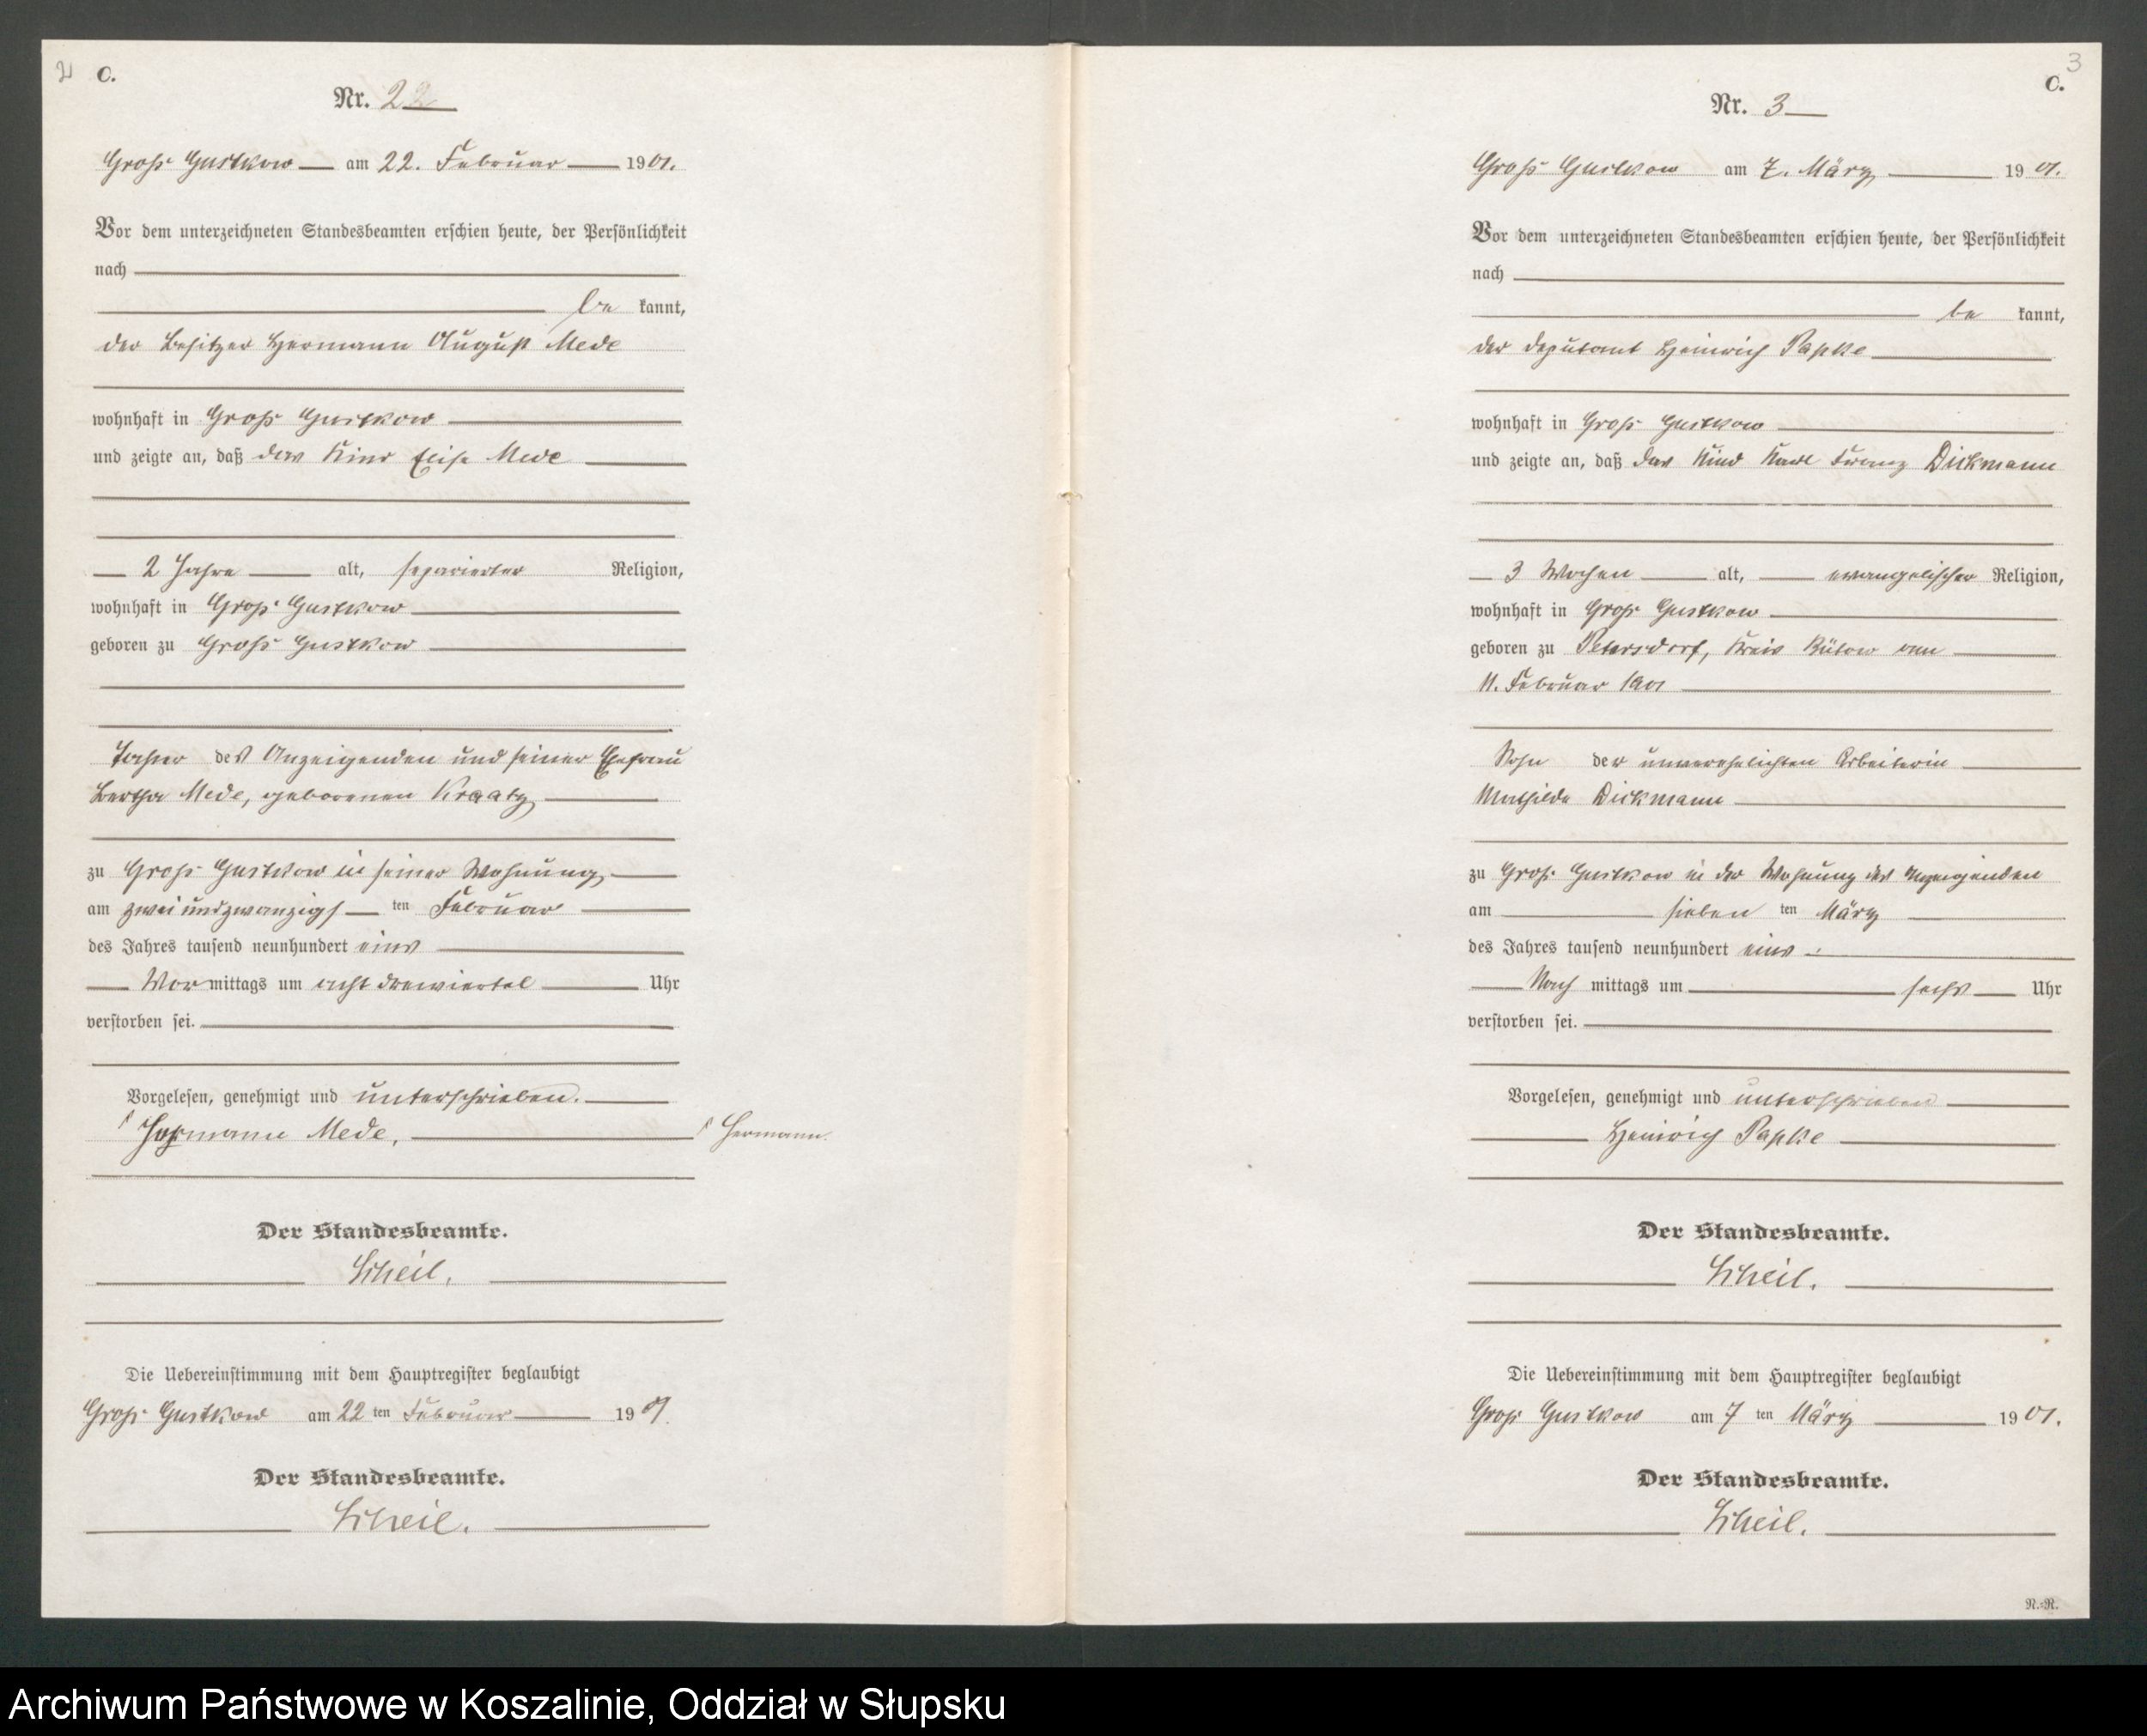 2
C.
Nr. 2
Groß Gustkow am 22. Februar 1901.
Vor dem unterzeichneten Standesbeamten erschien heute, der Persönlichkeit
nach
be kannt,
der Besitzer Hermann August Mede
wohnhaft in Groß Gustkow
und zeigte an, daß das Kind Elise Mede
2 Jahre alt, separierter Religion,
wohnhaft in Groß Gustkow
geboren zu Groß Gustkow
Tochter des Anzeigenden und seiner Ehefrau
Bertha Mede, geborenen Kraatz
zu Groß Gustkow in seiner Wohnung
am zwei und zwanzigs ten Februar
des Jahres tausend neunhundert eins
Vor mittags um acht dreiviertel Uhr
verstorben sei.
Vorgelesen, genehmigt und unterschrieben.
Hermann Mede. Hermann.
Der Standesbeamte.
Scheil.
Die Uebereinstimmung mit dem Hauptregister beglaubigt
Groß Gustkow am 22 ten Februar 1901.
Der Standesbeamte.
Scheil.
3
C.
Nr. 3
Groß Gustkow am 7. März 1901.
Vor dem unterzeichneten Standesbeamten erschien heute, der Persönlichkeit
nach
be kannt,
der Deputant Heinrich Papke
wohnhaft in Groß Gustkow
und zeigte an, daß das Kind Karl Franz Dickmann
3 Wochen alt, evangelischer Religion,
wohnhaft in Groß Gustkow
geboren zu Petersdorf, Kreis Bütow am
11. Februar 1901
Sohn der unverehelichten Arbeiterin
Mathilde Dickmann
zu Groß Gustkow in der Wohnung des Anzeigenden
am sieben ten März
des Jahres tausend neunhundert eins
Nach mittags um sechs Uhr
verstorben sei.
Vorgelesen, genehmigt und unterschrieben
Heinrich Papke
Der Standesbeamte.
Scheil.
Die Uebereinstimmung mit dem Hauptregister beglaubigt
Groß Gustkow am 7 ten März 1901.
Der Standesbeamte.
Scheil.
N.=R.
Archiwum Państwowe w Koszalinie, Oddział w Słupsku